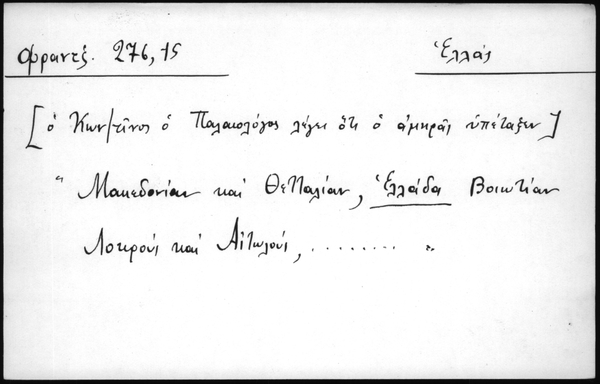 Φραντζ. 276,15 Ἑλλάς
[ὁ Κων/τῖνος ὁ Παλαιολόγος λέγει ὅτι ὁ ἀμηρᾶς ὑπέταξεν]
"Μακεδονίαν καὶ Θετταλίαν, Ἑλλάδα Βοιωτίαν
Λοκροὺς καὶ Αἰτωλούς, ........ "